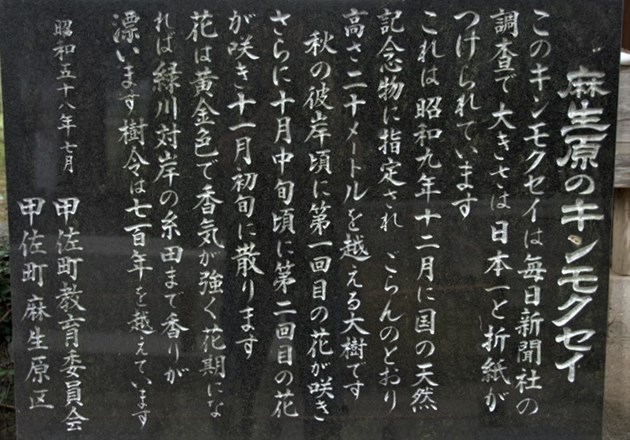 麻生原のキンモクセイ
このキンモクセイは毎日新聞社の
調査で 大きさは日本一と折紙が
つけられています
これは昭和九年十二月に国の天然
記念物に指定され ごらんのとおり
高さ二十メートルを越える大樹です
秋の彼岸頃に第一回目の花が咲き
さらに十月中旬頃に第二回目の花
が咲き十一月初旬に散ります
花は黄金色で香気が強く花期にな
れば緑川対岸の糸田まで香りが
漂います樹令は七百年を越えています
昭和五十八年七月
甲佐町教育委員会
甲佐町麻生原区